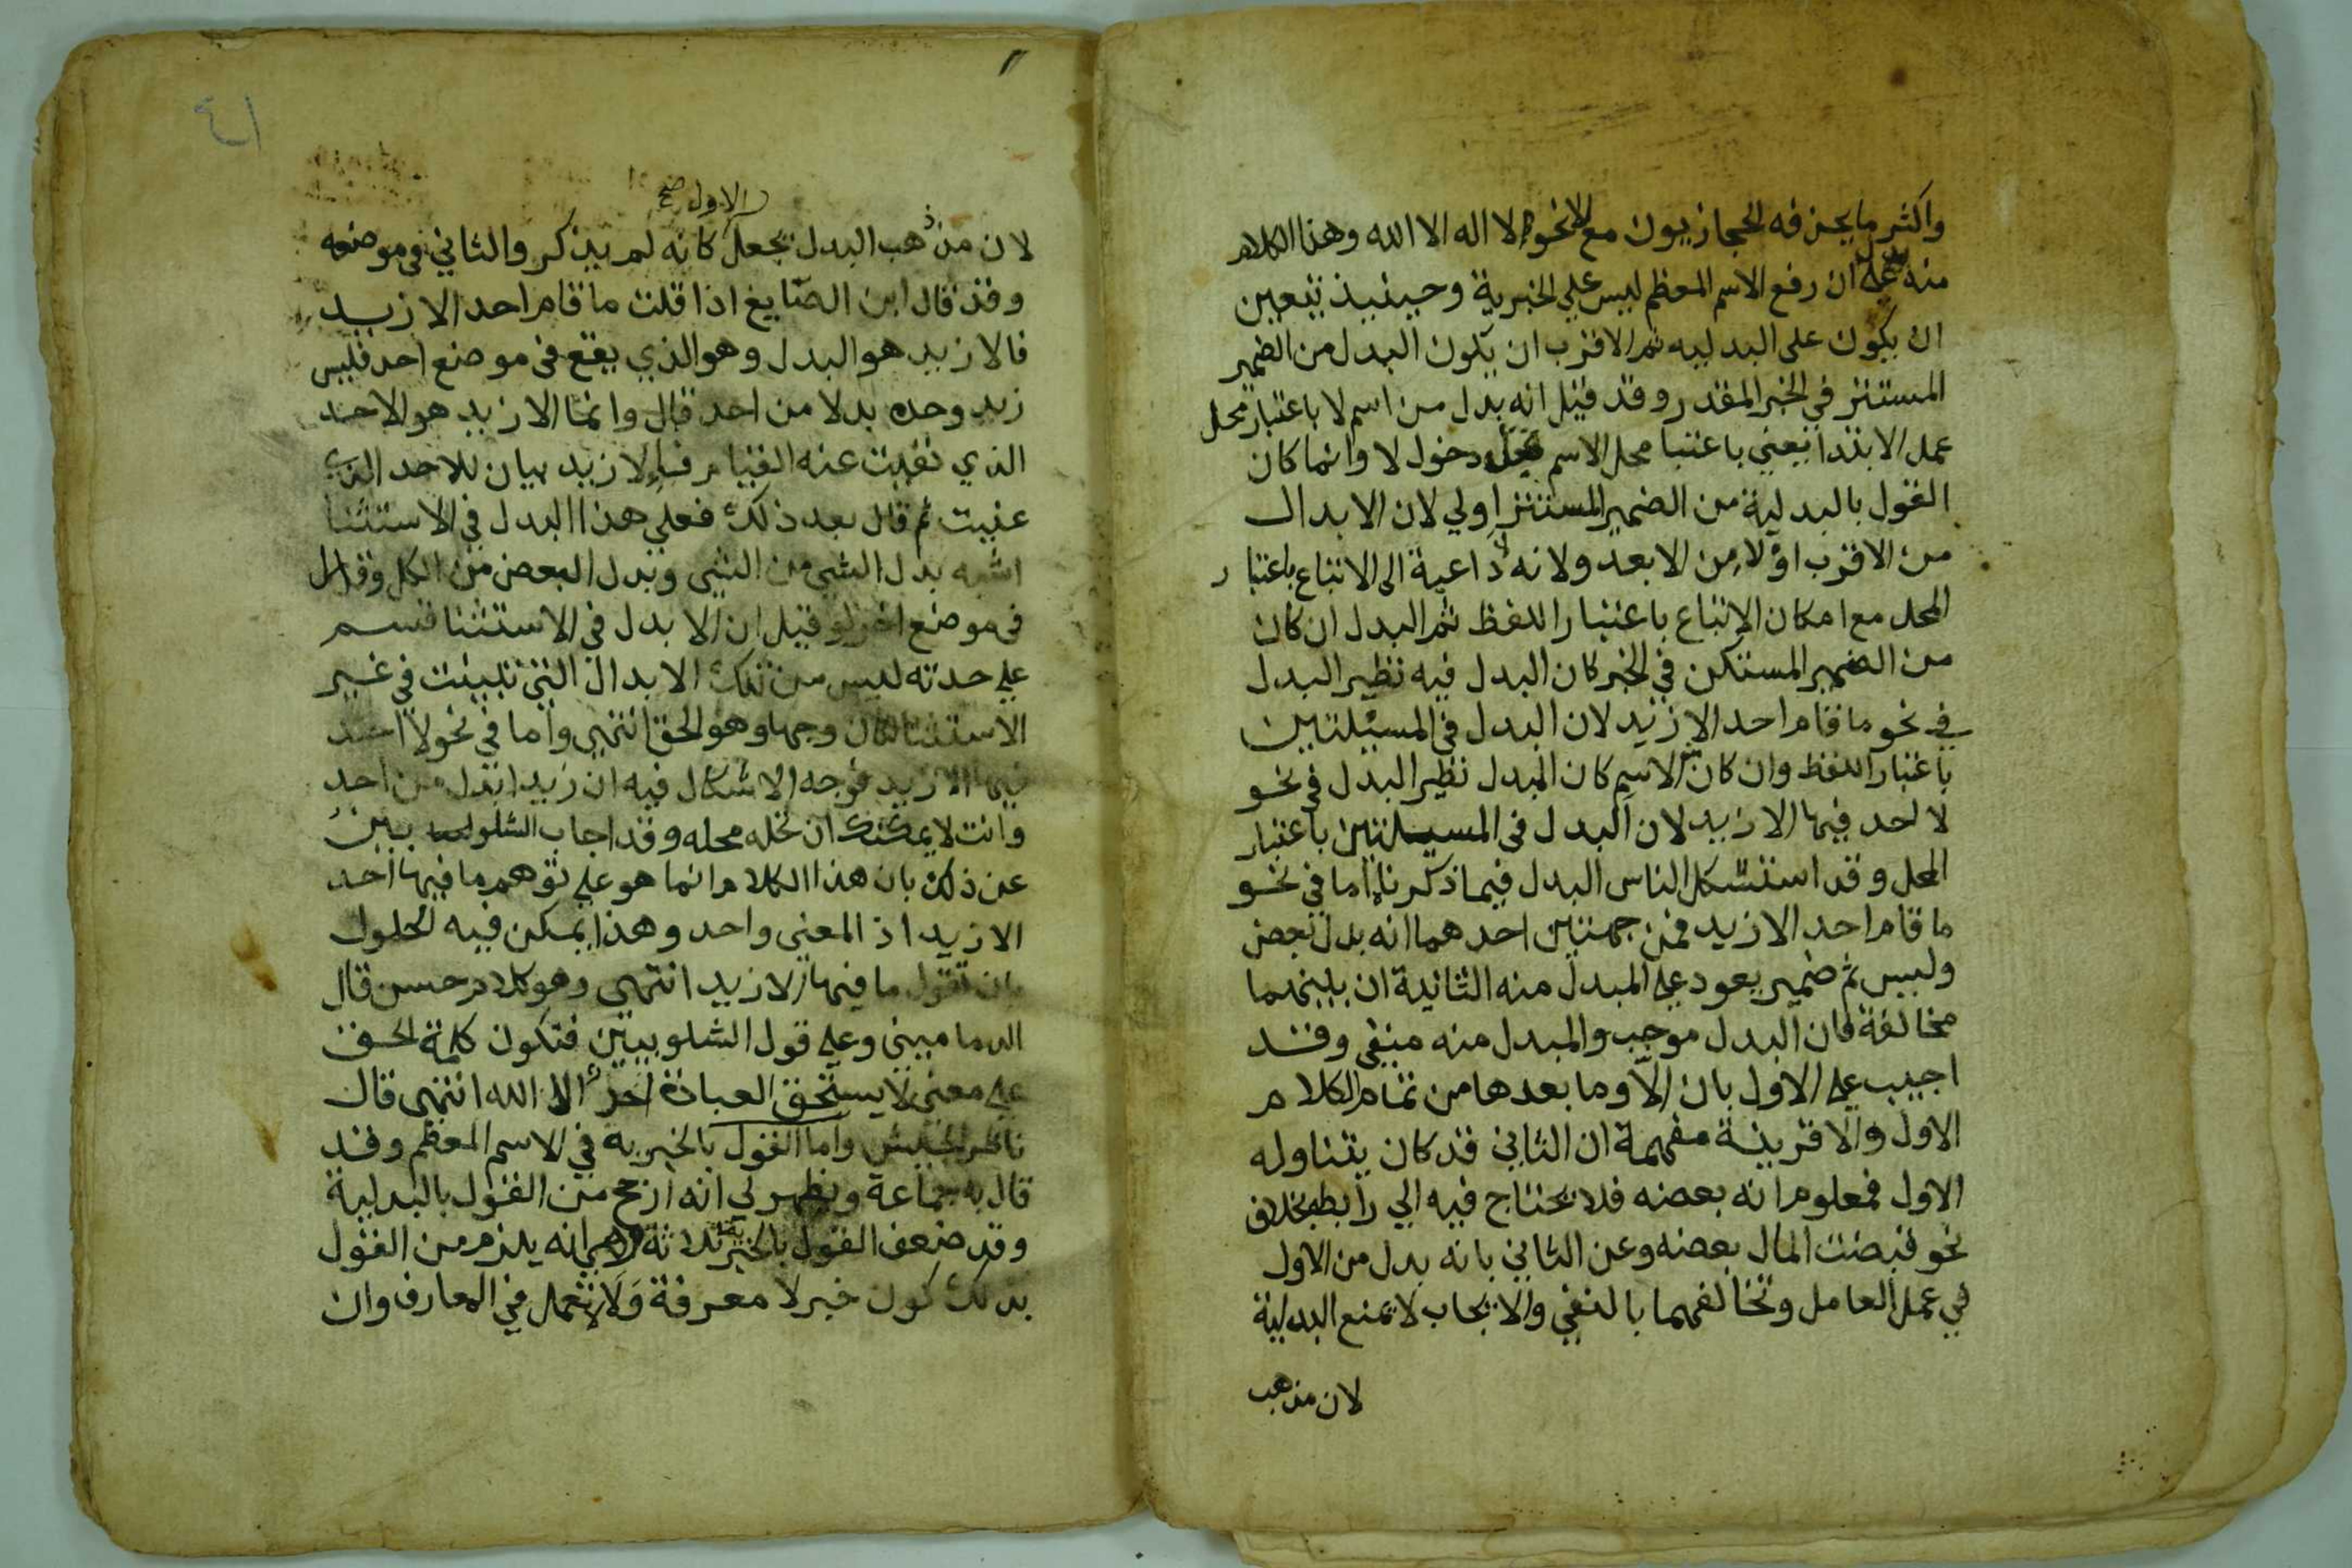 واكثر ما يحذفه الحجازيون مع إلا نحو لا اله الا الله وهذا الكلام
منه يدل علي ان رفع الاسم المعظم ليس علي الخبرية وحينيذ يتعين
ان يكون على البدليه ثم الاقرب ان يكون البدل من الضمير
المستتر في الخبر المقدر وقد قيل انه بدل من اسم لا باعتبار محل
عمل الابتدا يعني باعتبا محل الاسم قبل دخول لا وانما كان
القول بالبدلية من الضمير المستتر اولي لان الابدال
من الاقرب اولا من الابعد ولانه لا داعية الى الاتباع باعتبار
المحل مع امكان الاتباع باعتبار اللفظ ثم البدل ان كان
من الضمير المستكن في الخبر كان البدل فيه نظير البدل
في نحو ما قام احد الا زيد لان البدل في المسيلتين
باعتبار اللفظ وان كان من الاسم كان البدل نظير البدل في نحو
لا احد فيها الا زيد لان البدل في المسيلتين باعتبار
المحل وقد استشكل الناس البدل فيما ذكرنا اما في نحو
ما قام احد الا زيد فمن جهتين احدهما انه بدل بعض
وليس ثم ضمير يعود علي المبدل منه الثانية ان بينهما
مخالفة فان البدل موجب والمبدل منه منفي وقد
اجيب علي الاول بان الا وما بعدها من تمام الكلام
الاول والا قرينة مفهمة ان الثاني قد كان يتناوله
الاول فمعلوم انه بعضه فلا يحتاج فيه الي رابط بخلاف
نحو قبضت المال بعضه وعن الثاني بانه بدل من الاول
في عمل العامل وتخالفهما بالنفي والايجاب لا يمنع البدلية
لان مذهب
٤١
الاول صح
لان مذهب البدل يجعل كانه لم يذكر والثاني في موضعه
وقد قال ابن الصايغ اذا قلت ما قام احد الا زيد
فالا زيد هو البدل وهو الذي يقع في موضع احد فليس
زيد وحده بدلا من احد قال وانما الا زيد هو الاحد
الذي نفيت عنه القيام فالا زيد بيان للاحد الذي
عنيت ثم قال بعد ذلك فعلي هذا البدل في الاستثنا
اشبه بدل الشي من الشي وبدل البعض من الكل وقال
في موضع اخر لو قيل ان الا بدل في الاستثنا قسم
علي حدته ليس من تلك الابدال التي تبينت في غير
الاستثنا لكان وجها وهو الحق انتهي واما في نحو لا احد
فيها الا زيد فوجه الاشكال فيه ان زيدا بدل من احد
وانت لا يمكنك ان تحله محله وقد اجاب الشلوبين
عن ذلك بان هذا الكلام انما هو علي توهم ما فيها احد
الا زيد اذ المعني واحد وهذا يمكن فيه الحلول
بان تقول ما فيها الا زيد انتهي وهو كلام حسن قال
الدماميني وعلي قول الشلوبيين فتكون كلمة الحق
علي معني لا يستحق العبادة احد الا الله انتهي قال
ناظر الجيش واما القول بالخبريه في الاسم المعظم وقد
قال به جماعة ويظهر لي انه ارجح من القول بالبدلية
وقد ضعف القول بالخبرية ثلاثة انه يلزم من القول
بذلك كون خبر لا معرفة ولا لا تعمل في المعارف وان